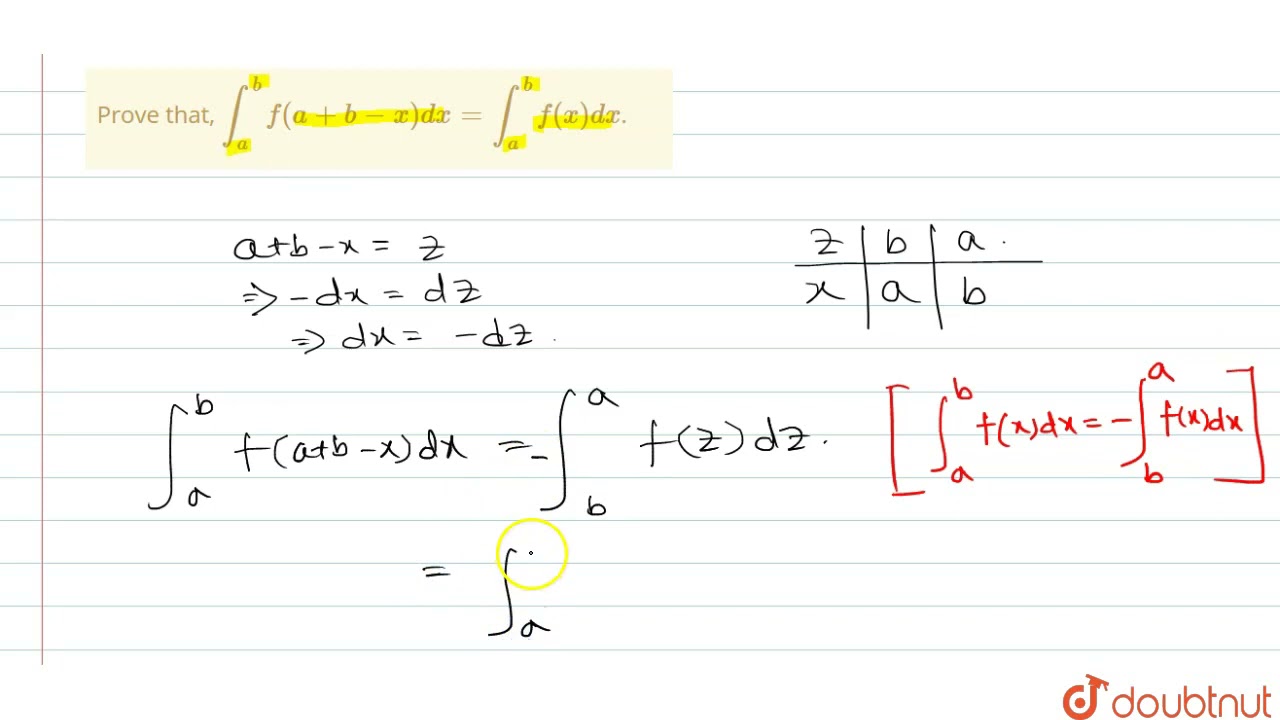 Prove that, ∫_a^b f(a + b − x)dx = ∫_a^b f(x)dx.
a+b−x = z
⇒ −dx = dz
⇒ dx = −dz.
z | b | a.
x | a | b
∫_a^b f(a+b−x)dx = −∫_b^a f(z)dz. [∫_a^b f(x)dx = −∫_b^a f(x)dx]
= ∫_a
doubtnut